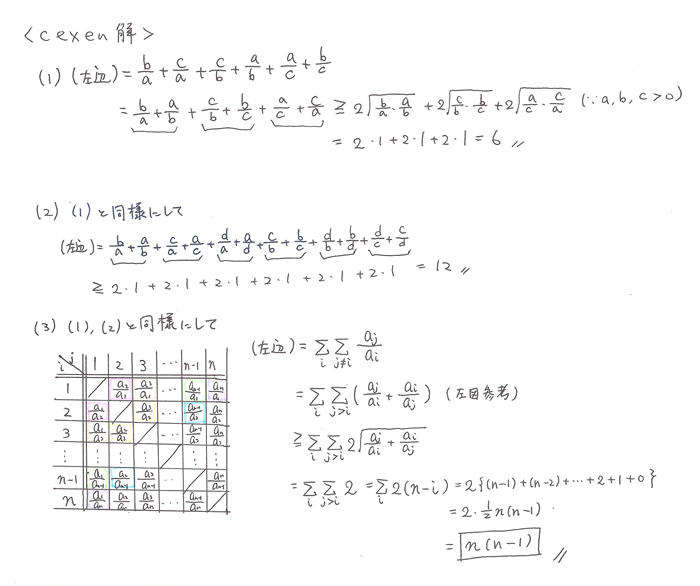 <cexen 解>
(1) (左辺) = b/a + c/a + c/b + a/b + a/c + b/c
= b/a + a/b + c/b + b/c + a/c + c/a ≧ 2√(b/a・a/b) + 2√(c/b・b/c) + 2√(a/c・c/a) (∵a, b, c > 0)
= 2・1 + 2・1 + 2・1 = 6 //
(2) (1)と同様にして
(左辺) = b/a + a/b + c/a + a/c + d/a + a/d + c/b + b/c + d/b + b/d + d/c + c/d
≧ 2・1 + 2・1 + 2・1 + 2・1 + 2・1 + 2・1 = 12 //
(3) (1), (2)と同様にして
i j 1 2 3 … n-1 n
1 a₂/a₁ a₃/a₁ … aₙ₋₁/a₁ aₙ/a₁
2 a₁/a₂ a₃/a₂ … aₙ₋₁/a₂ aₙ/a₂
3 a₁/a₃ a₂/a₃ … aₙ₋₁/a₃ aₙ/a₃
⋮ ⋮ ⋮ ⋮ ⋮ ⋮
n-1 a₁/aₙ₋₁ a₂/aₙ₋₁ a₃/aₙ₋₁ … aₙ/aₙ₋₁
n a₁/aₙ a₂/aₙ a₃/aₙ … aₙ₋₁/aₙ
(左辺) = Σ_i Σ_{j≠i} aⱼ/aᵢ
= Σ_i Σ_{j>i} (aⱼ/aᵢ + aᵢ/aⱼ) (左図参考)
≧ Σ_i Σ_{j>i} 2√(aⱼ/aᵢ + aᵢ/aⱼ)
= Σ_i Σ_{j>i} 2 = Σ_i 2(n-i) = 2{(n-1)+(n-2)+…+2+1+0}
= 2・1/2 n(n-1)
= n(n-1) //